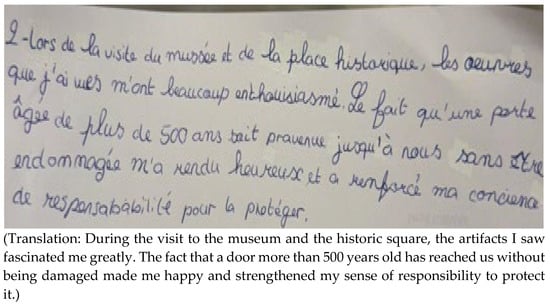 2-Lors de la visite du musée et de la place historique, les oeuvres
que j'ai vues m'ont beaucoup enthouisiasmé. Le fait qu'une porte
âgée de plus de 500 ans soit pravenue jusqu'à nous sans être
endommagée m'a rendu heureux et a renforcé ma concience
de responsababilité pour la protéger.
(Translation: During the visit to the museum and the historic square, the artifacts I saw
fascinated me greatly. The fact that a door more than 500 years old has reached us without
being damaged made me happy and strengthened my sense of responsibility to protect
it.)